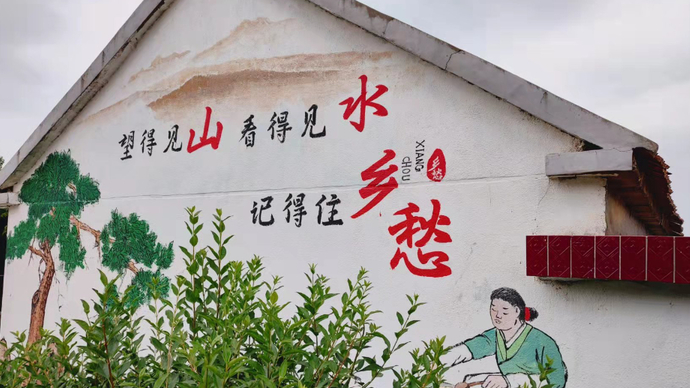 望得见山 看得见水
记得住乡愁
XIANG
CHOU
乡愁